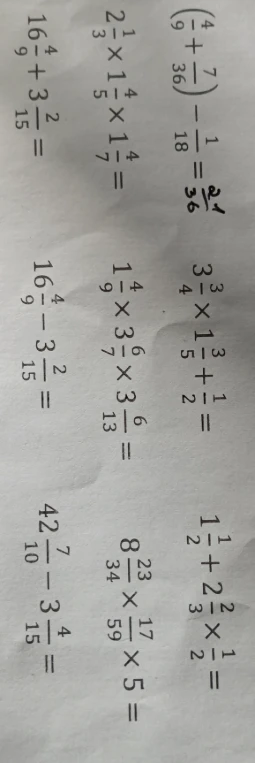 (4/9 + 7/36) − 1/18 = 21/36 3 3/4 × 1 3/5 + 1/2 = 1 1/2 + 2 2/3 × 1/2 =
2 1/3 × 1 4/5 × 1 4/7 = 1 4/9 × 3 6/7 × 3 6/13 = 8 23/34 × 17/59 × 5 =
16 4/9 + 3 2/15 = 16 4/9 − 3 2/15 = 42 7/10 − 3 4/15 =